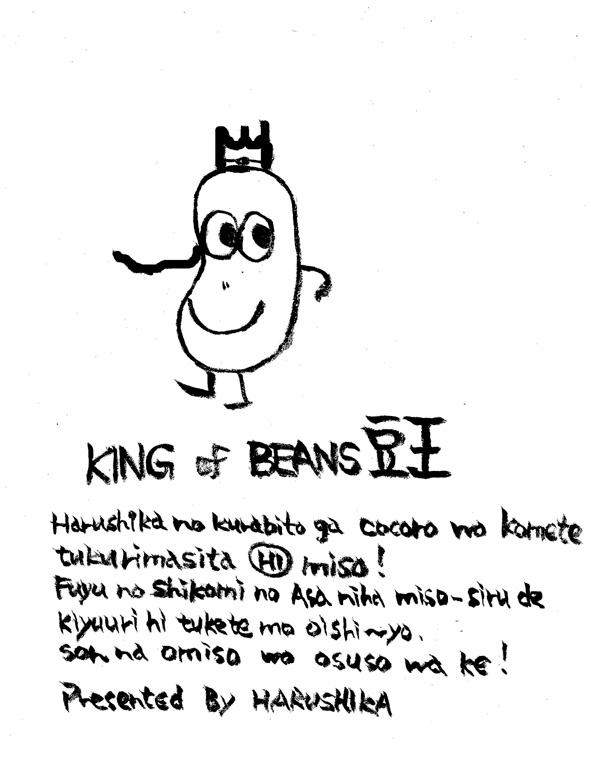 KING of BEANS 豆王
Harushika no kurabito ga cocoro wo komete
tukurimasita HI miso!
Fuyu no Shikomi no Asa niha miso-siru de
kiyuuri hi tukete mo oishi~yo.
son na omiso wo osuso wa ke!
Presented By HARUSHIKA